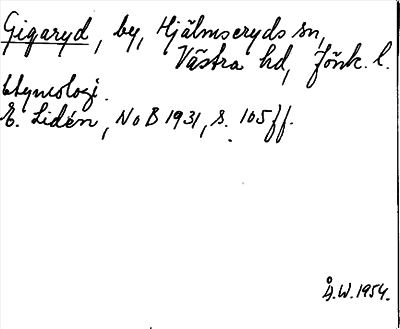 Gigaryd, by, Hjälmseryds sn,
Västra hd, Jönk. l.
Etymologi.
E. Lidén, NoB 1931, s. 105 ff.
Å.W. 1954.